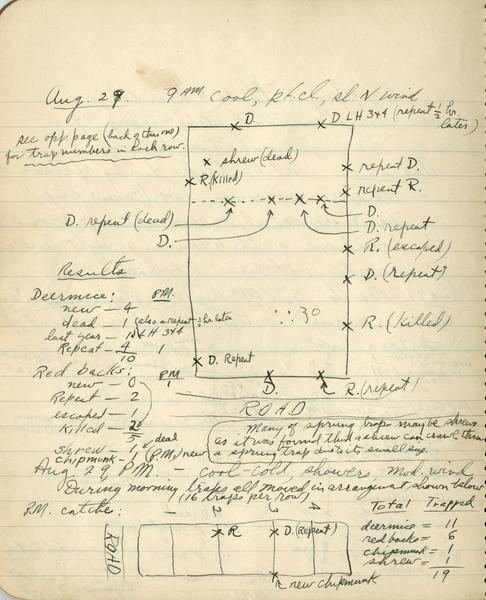 Aug. 29. 9 AM. cool, pt. cl., sl. N wind
see opp. page (back of this one)
for trap numbers in each row.
D.
D. LH 3&4 (repeat 1/2 hr. later)
shrew (dead)
repeat D.
R. (killed)
repeat R.
D. repeat (dead)
D.
D.
D. repeat
R. (escaped)
D. (repeat)
R. (killed)
D. Repeat
D.
R. (repeat)
ROAD
30
Results
Deermice: P.M.
new - 4
dead - 1 (also a repeat 1/2 hr. later
last year - 1 LH 3&4
Repeat - 4 1
10
Red backs: PM
new - 0 1
Repeat - 2
escaped - 1
killed - 2
5
shrew - 1 dead
chipmunk - 1 (P.M.) new
Many of spring traps may be shrews
as it was found that a shrew can crawl thru
a spring trap due to its small size.
Aug 29, P.M. - cool-cold showers, mod. wind
During morning traps all moved in arrangement shown below
(16 traps per row)
P.M. catches: 1 2 3 4
Total Trapped
deermice = 11
red backs = 6
chipmunk = 1
shrew = 1
19
ROAD
R
D. (Repeat)
new chipmunk